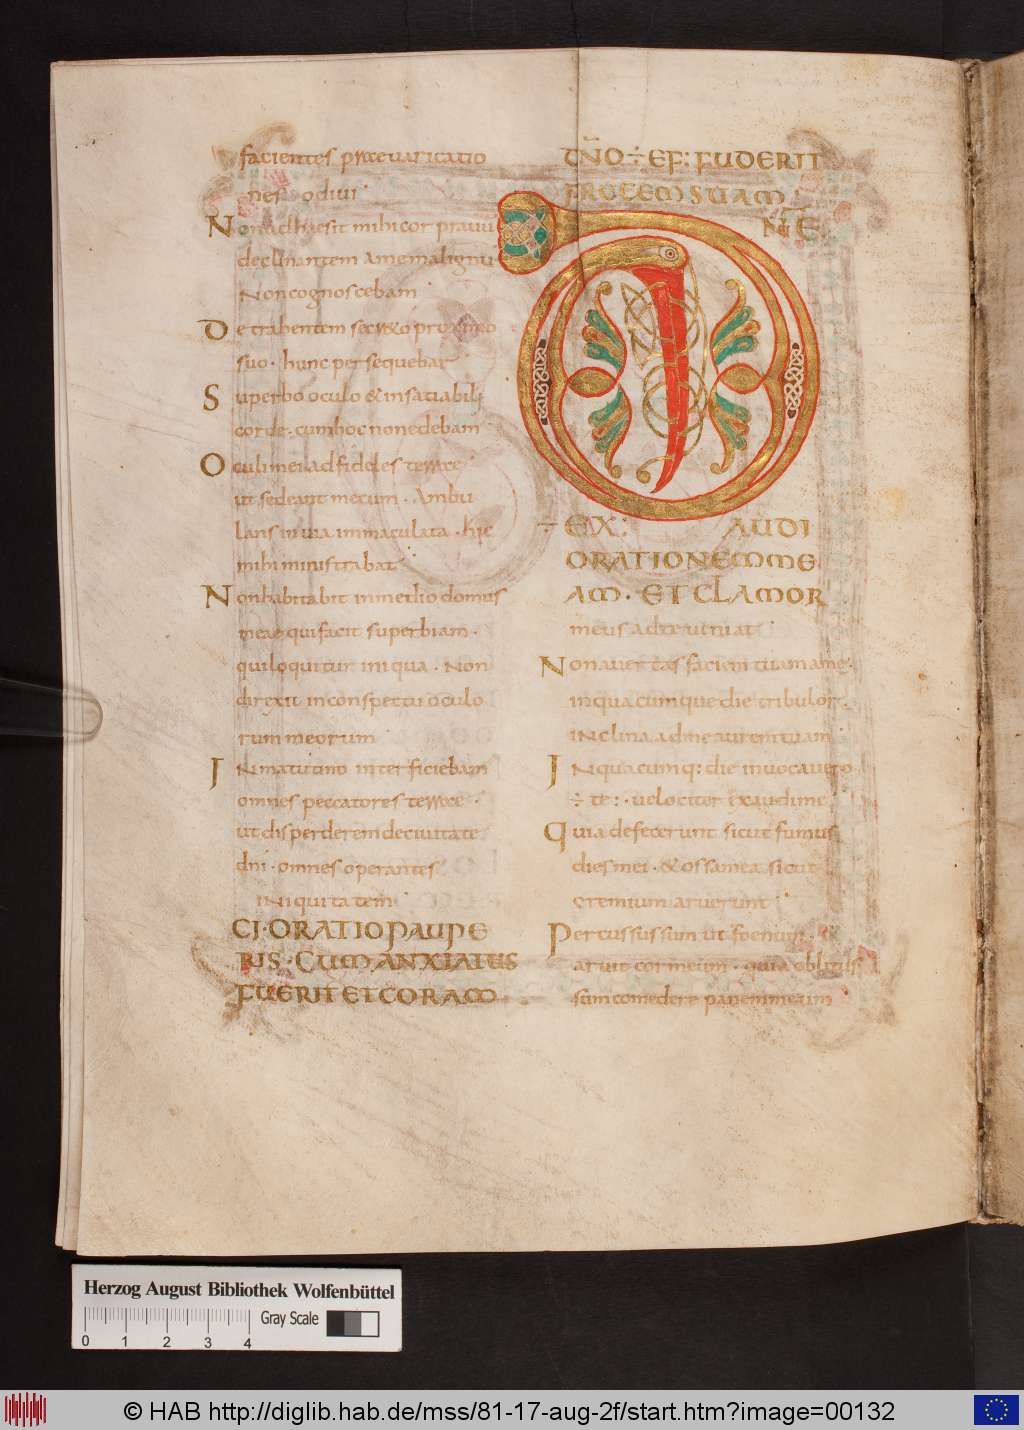 facientes praevaricatio
nes odivi
Non adhaesit mihi cor pravu
declinantem a me malignu
Non cognoscebam
Detrahentem secreto proximo
suo · hunc persequebar
Superbo oculo & insatiabili
corde · cum hoc non edebam
Oculi mei ad fideles terrae
ut sedeant mecum · Ambu
lans in via immaculata · hic
mihi ministrabat
Non habitabit in medio domus
meae qui facit superbiam ·
qui loquitur iniqua · Non
direxit in conspectu oculo
rum meorum
In matutino interficiebam
omnes peccatores terrae ·
ut disperderem de civitate
dni · omnes operantes
iniquitatem
CI · ORATIO PAUPE
RIS · CUM ANXIATUS
FUERIT ET CORAM
DÑO ÷ EF: FUDERIT
PRECEM SUAM
DÑE
÷ EX: AUDI
ORATIONEM ME
AM · ET CLAMOR
meus ad te veniat
Non avertas faciem tuam a me
in quacumque die tribulor
inclina ad me aurem tuam
In quacumq: die invocavero
÷ te: · velociter exaudi me
Quia defecerunt sicut fumus
dies mei · & ossa mea sicut
cremium aruerunt
Percussus sum ut foenum
aruit cor meum · quia oblitus
sum comedere panem meum
Herzog August Bibliothek Wolfenbüttel
Gray Scale
0 1 2 3 4
© HAB http://diglib.hab.de/mss/81-17-aug-2f/start.htm?image=00132